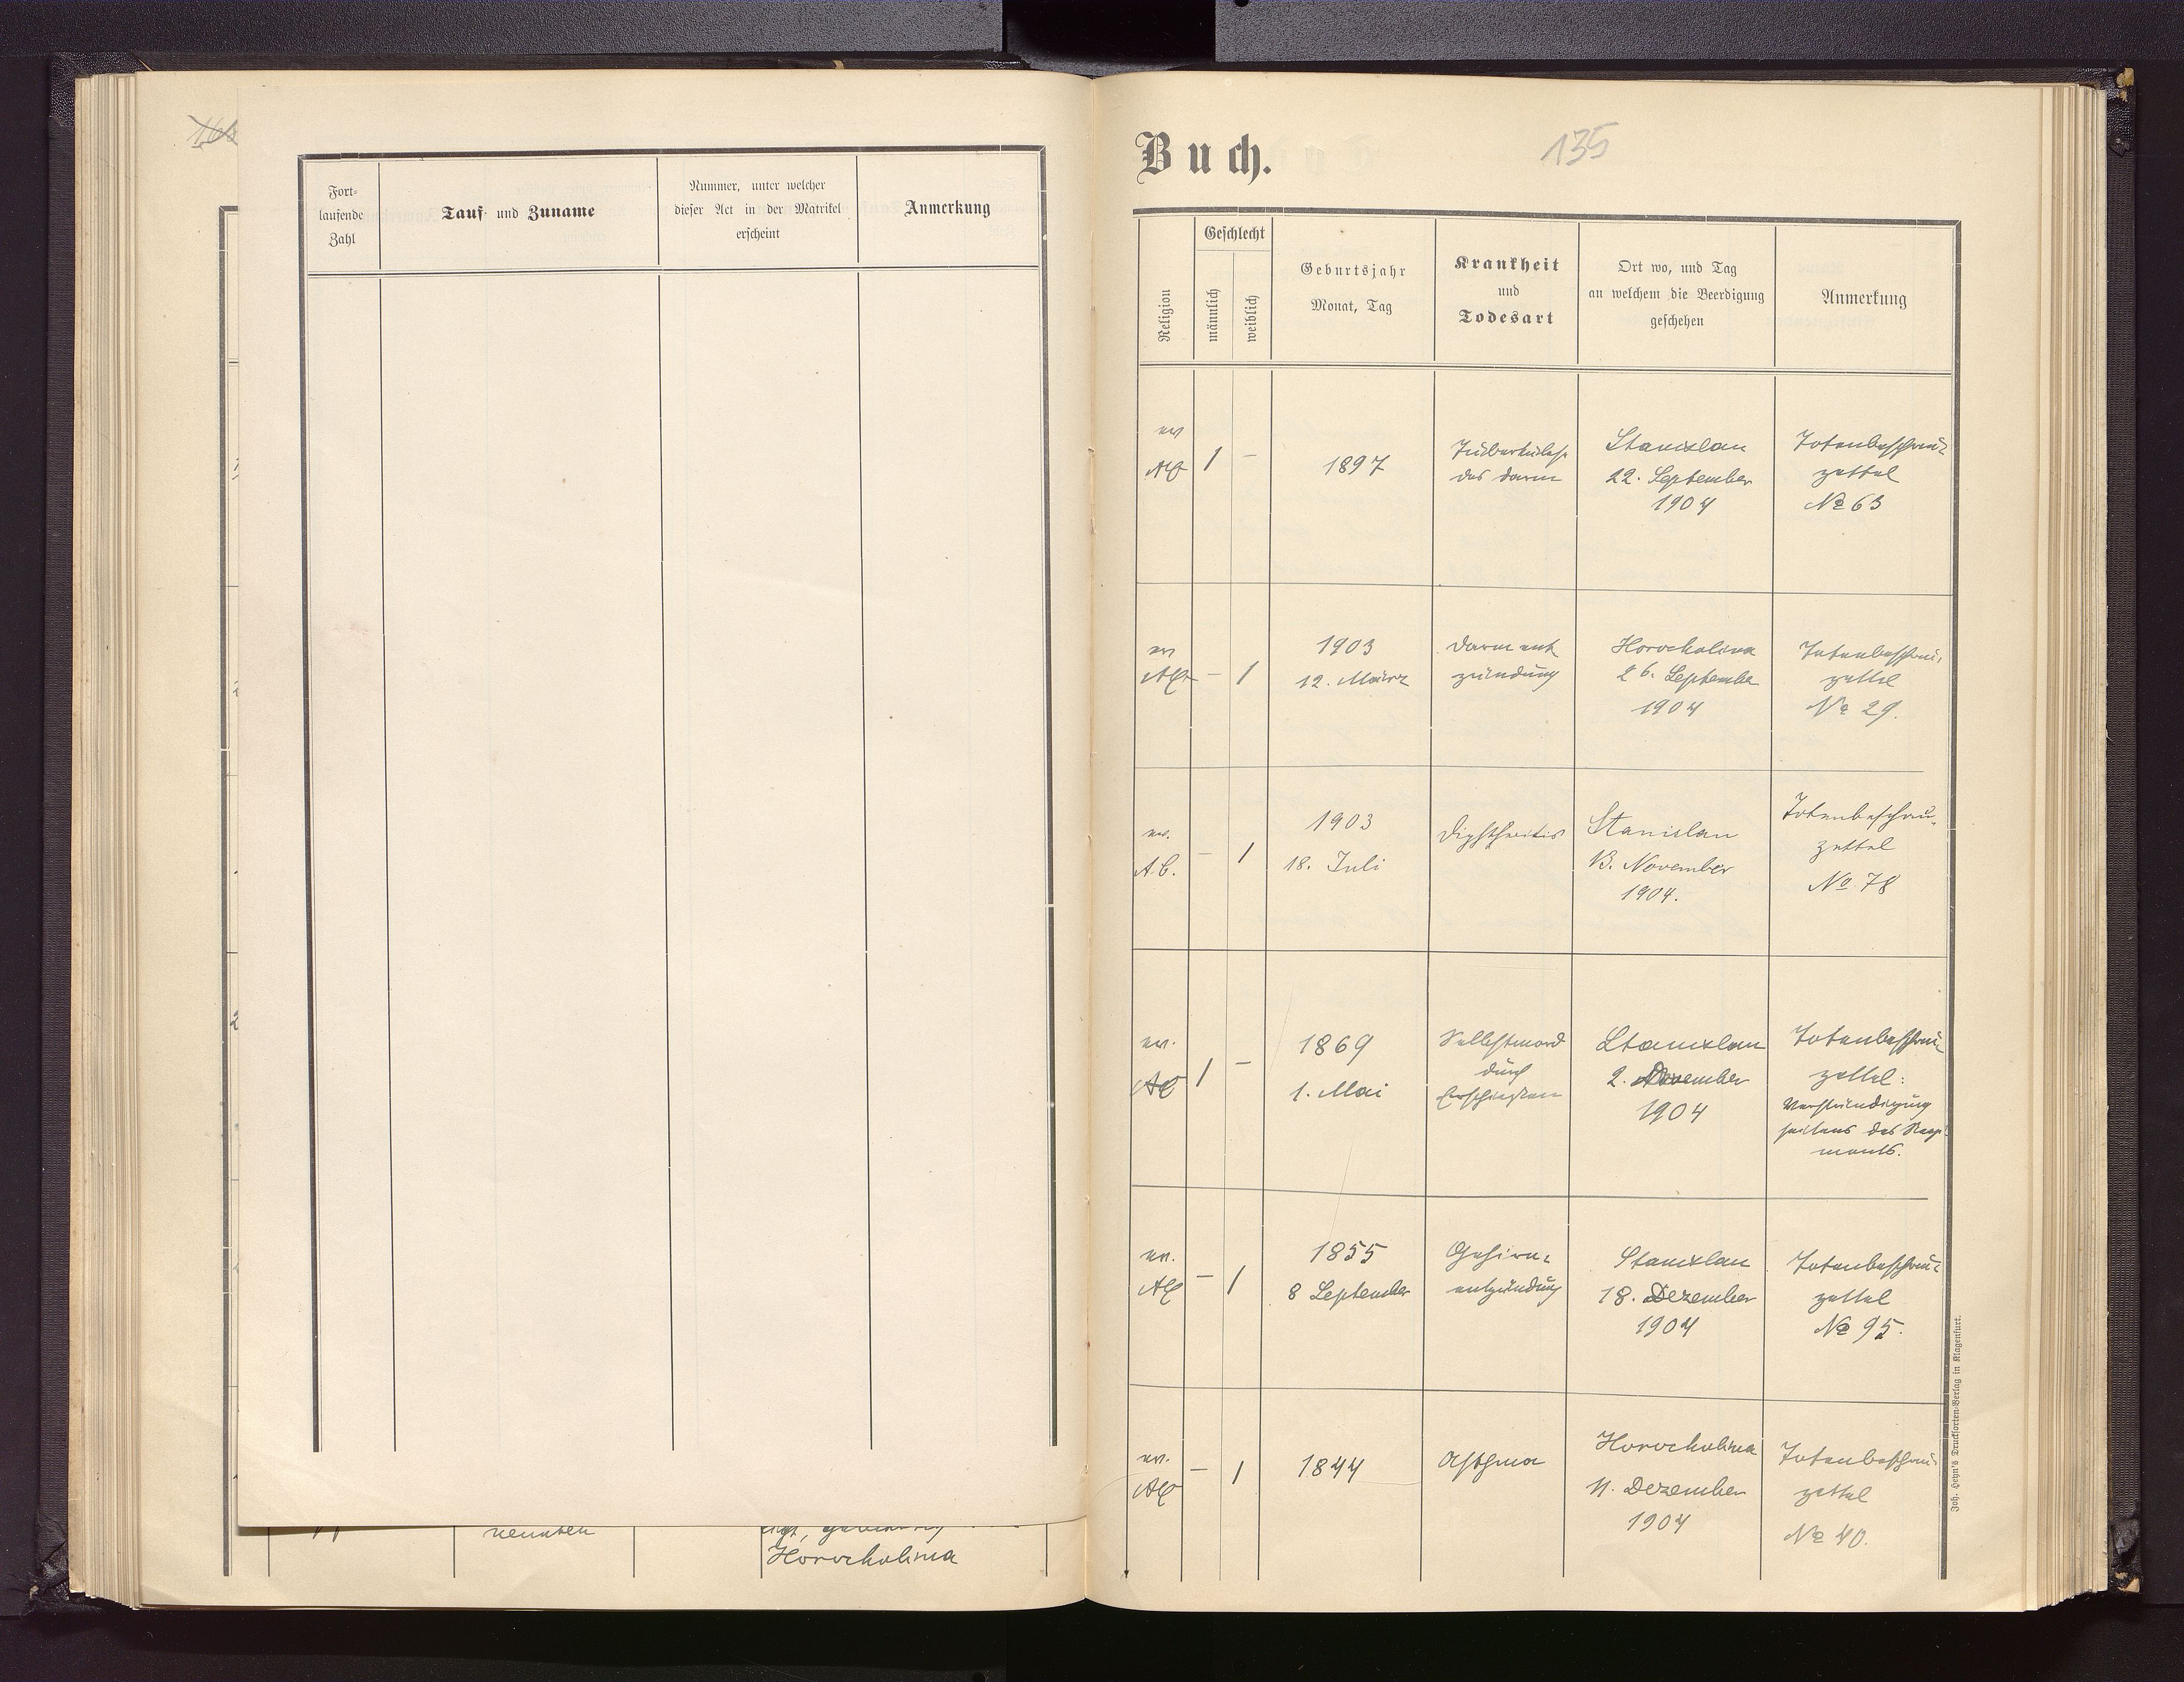 Fort-
laufende
Zahl
Tauf- und Zuname
Nummer, unter welcher
dieser Act in der Matrikel
erscheint
Anmerkung
nennten
Horocholina
Buch.
135
Religion
Geschlecht
männlich
weiblich
Geburtsjahr
Monat, Tag
Krankheit
und
Todesart
Ort wo, und Tag
an welchem die Beerdigung
geschehen
Anmerkung
ev
AC
1
–
1897
Tuberkulose
des Darm
Stanislau
22. September
1904
Totenbeschau-
zettel
No 63
ev
AC
–
1
1903
12. März
Darment
zündung
Horocholina
26. September
1904
Totenbeschau-
zettel
No 29.
ev.
A.C.
–
1
1903
18. Juli
Diphtheritis
Stanislau
13. November
1904.
Totenbeschau-
zettel
No 78
ev.
AC
1
–
1869
1. Mai
Selbstmord
durch
Erschießen
Stanislau
2. November
1904
Totenbeschau-
zettel:
Verständigung
seitens des Regi-
ments.
ev.
AC
–
1
1855
8 September
Gehirn-
entzündung
Stanislau
18. Dezember
1904
Totenbeschau-
zettel
No 95.
ev.
AC
–
1
1844
Asthma
Horocholina
11. Dezember
1904
Totenbeschau-
zettel
No 40.
Joh. Heyn's Drucksorten-Verlag in Klagenfurt.